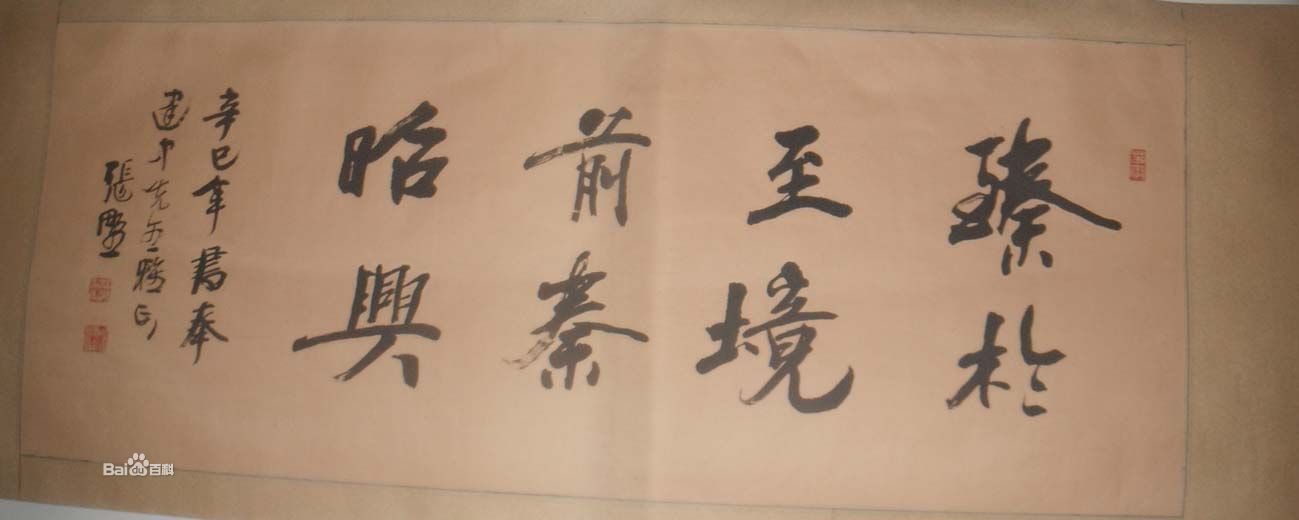 臻於
至境
前秦
昭興
辛巳年書奉
建中先生雅正
張
Bai du 百科